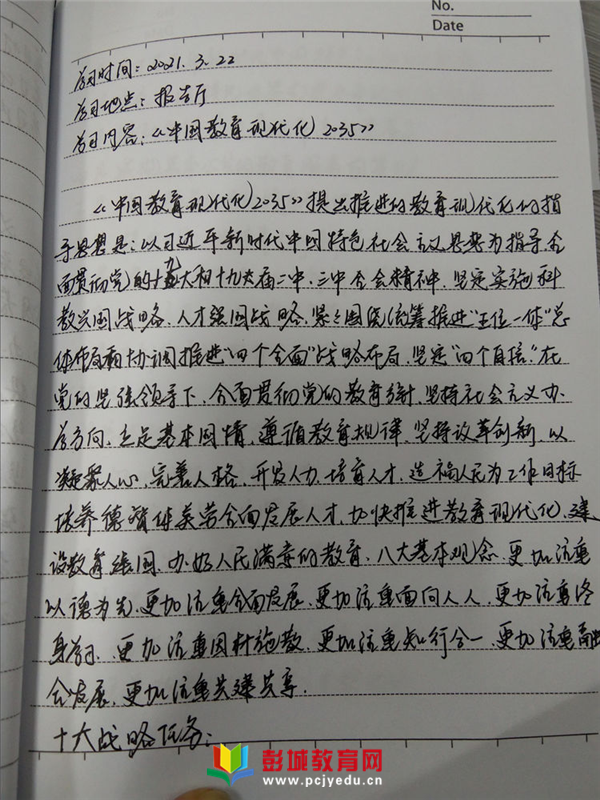 No.
Date
学习时间:2021.3.22
学习地点:报告厅
学习内容:《中国教育现代化2035》
《中国教育现代化2035》提出推进的教育现代化的指
导思想是:以习近平新时代中国特色社会主义思想为指导,全
面贯彻党的十九大和十九大届二中、三中全会精神,坚定实施科
教兴国战略、人才强国战略,紧紧围绕统筹推进"五位一体"总
体布局和协调推进"四个全面"战略布局,坚定"四个自信",在
党的坚强领导下,全面贯彻党的教育方针,坚持社会主义办
学方向,立足基本国情,遵循教育规律,坚持改革创新,以
凝聚人心、完善人格、开发人力、培育人才、造福人民为工作目标
培养德智体美劳全面发展人才,加快推进教育现代化、建
设教育强国、办好人民满意的教育,八大基本观念,更加注重
以德为先,更加注重全面发展,更加注重面向人人,更加注重终
身学习,更加注重因材施教,更加注重知行合一,更加注重融
合发展,更加注重共建共享.
十大战略任务:
彭城教育网
www.pcjyedu.cn